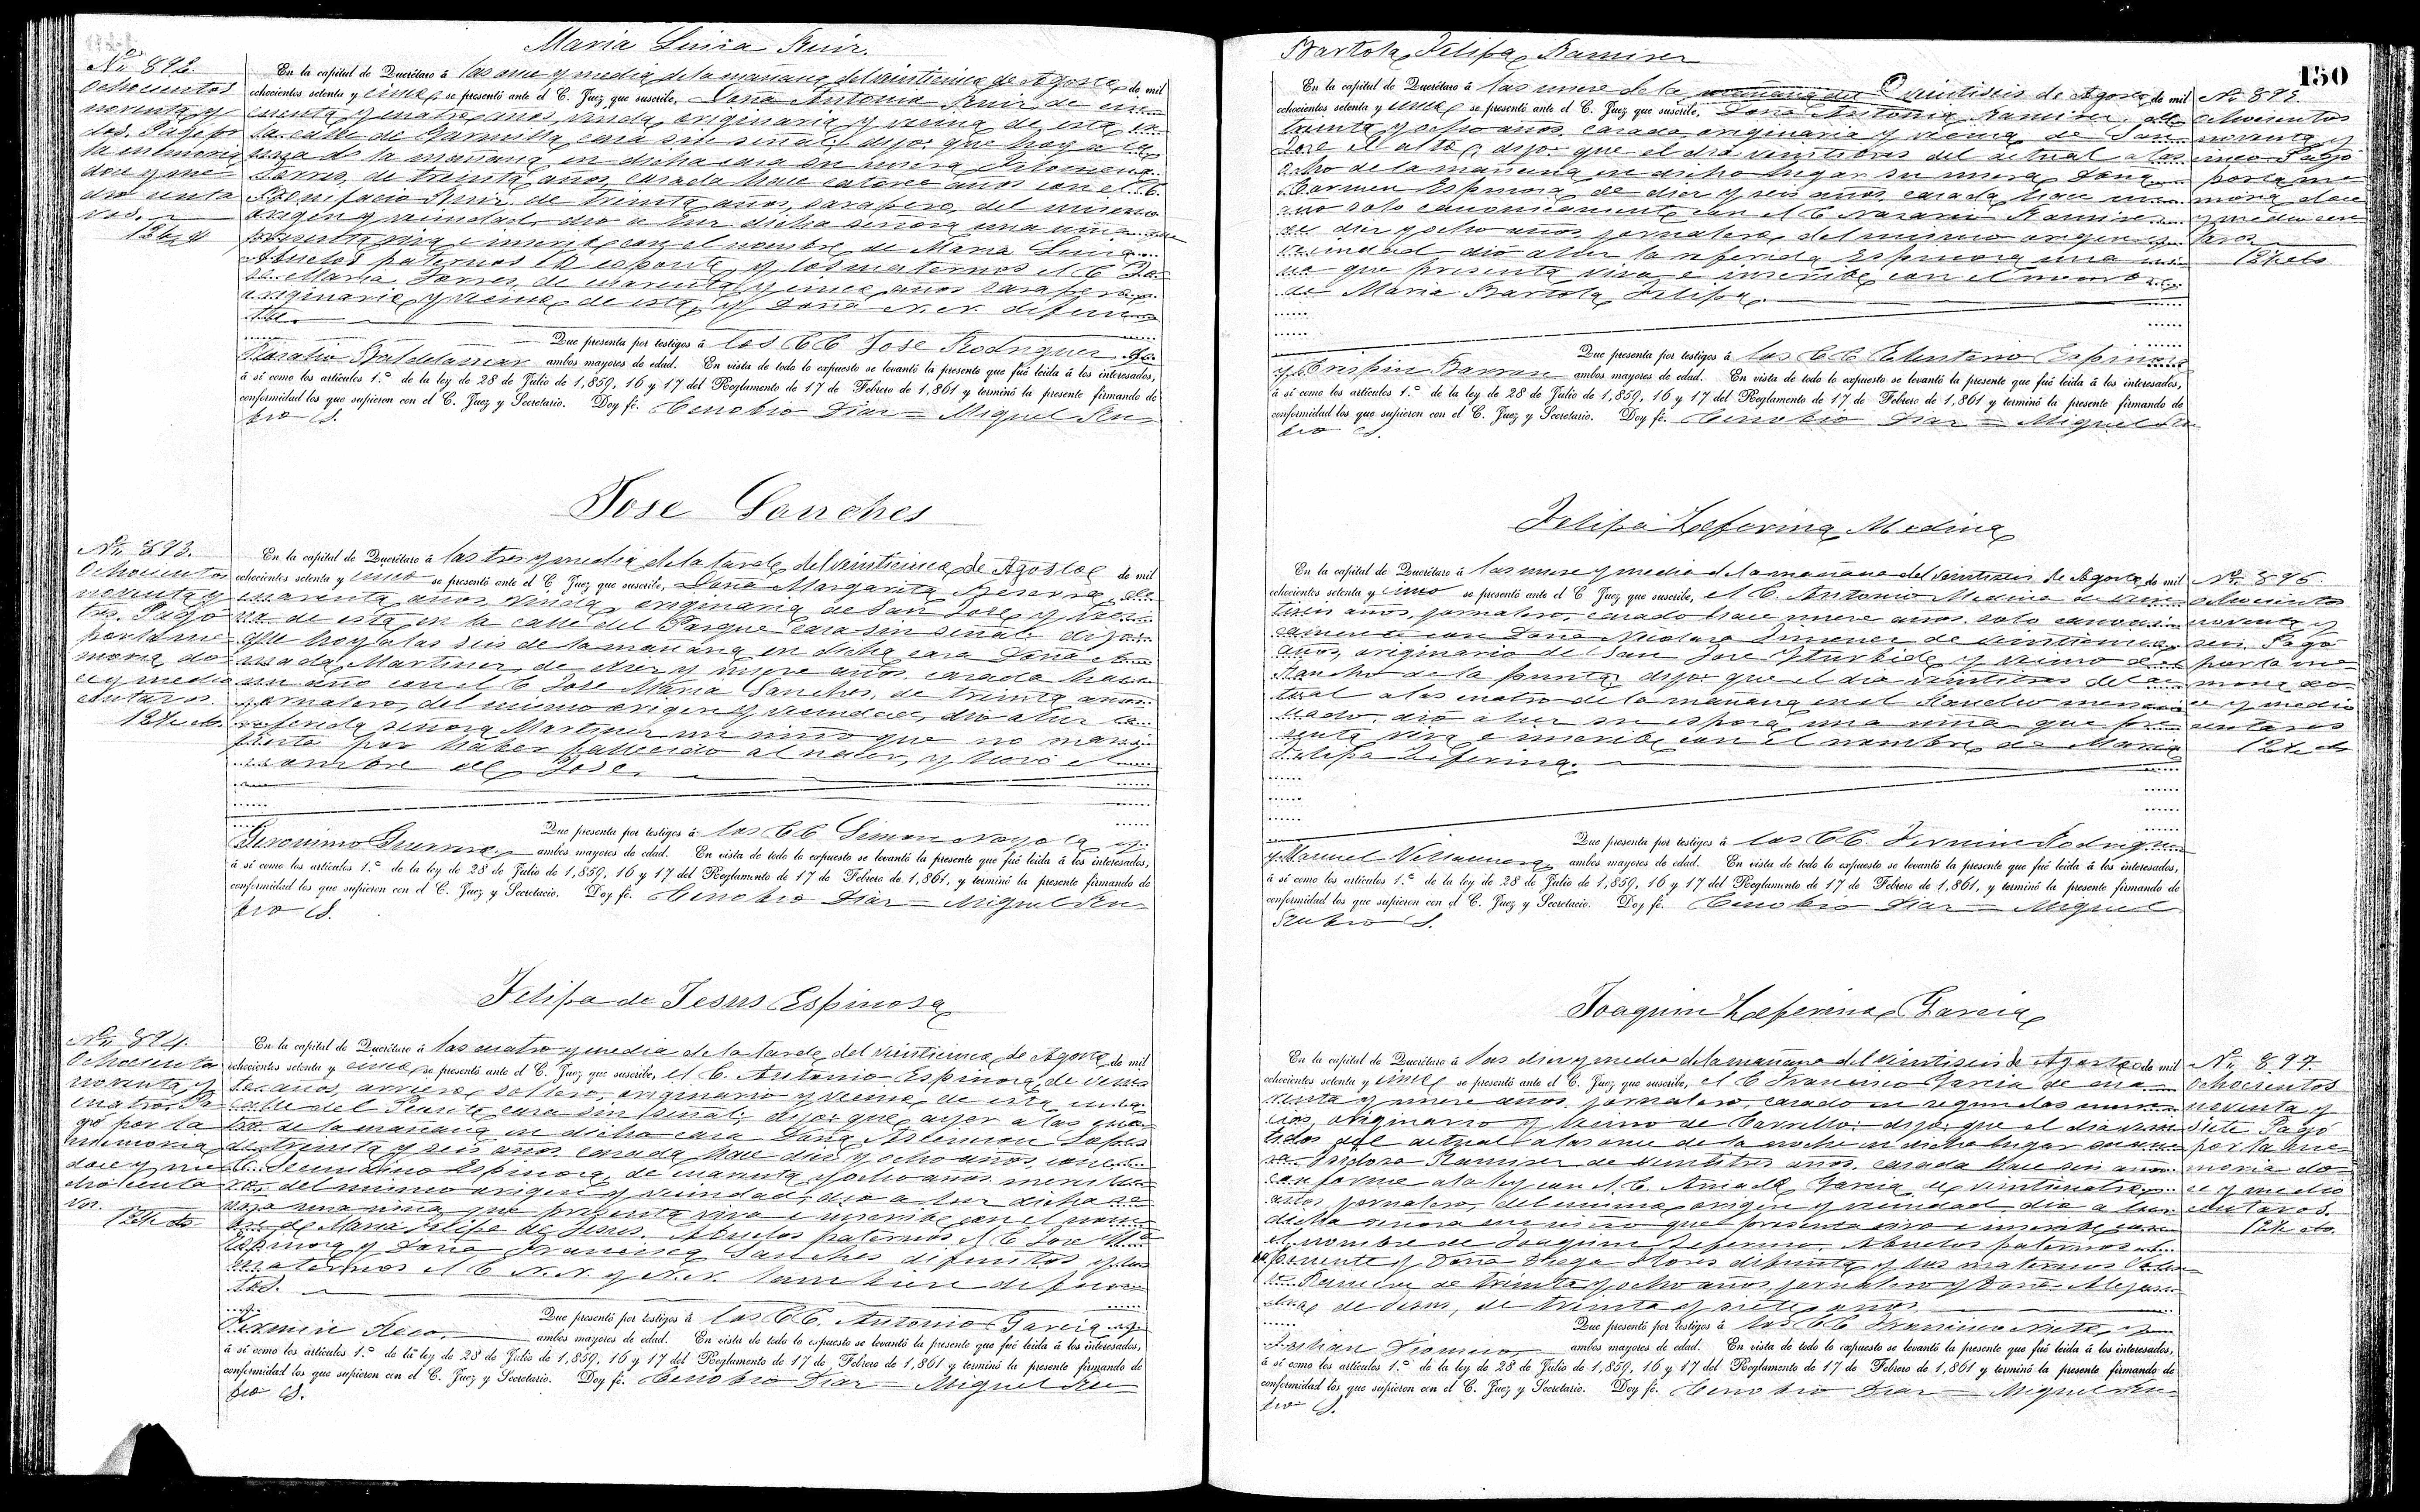 Maria Luisa Ruiz.
No. 892.
Ochocientos
noventa y
dos. Pagó por
la memoria
doce y me
dio centa
vos.
12½ c
En la capital de Querétaro á las once y media de la mañana del veinticinco de Agosto de mil
ochocientos setenta y cinco, se presentó ante el C. Juez que suscribe, Doña Antonia Ruiz, de cin
cuenta y cuatro años, viuda, originaria y vecina de esta en
la calle de casa sin señal; dijo: que hoy a la
una de la mañana en dicha casa su nuera Filomena
Torres, de treinta años, casada hace catorce años con el C.
Bonifacio Ruiz de treinta años, sarapero, del mismo
origen y vecindad, dió a luz dicha señora una niña que
presenta viva e inscribe con el nombre de Maria Luisa.
Abuelos paternos la esponente y los maternos el C. Jo
sé Maria Torres, de cuarenta y cinco años sarapero
originario y vecino de esta, y Doña N. N. difun
ta.
Que presenta por testigos á los CC José Rodriguez y
Rosalio Baldelamar ambos mayores de edad. En vista de todo lo expuesto se levantó la presente que fué leida á los interesados,
á sí como los artículos 1.º de la ley de 28 de Julio de 1,859, 16 y 17 del Reglamento de 17 de Febrero de 1,861 y terminó la presente firmando de
conformidad los que supieron con el C. Juez y Secretario. Doy fé. Cenobio Diaz = Miguel Ru
bio S.
Jose Sanches
No. 893.
Ochocientos
noventa y
tres. Pagó
por la me
moria do
ce y medio
centavos.
12½ cts.
En la capital de Querétaro á las tres y media de la tarde del veinticinco de Agosto de mil
ochocientos setenta y cinco se presentó ante el C. Juez que suscribe, Doña Margarita Becerra, de
cuarenta años, viuda, originaria de San José y veci
na de esta en la calle del Parque casa sin señal: dijo:
que hoy a las seis de la mañana en dicha casa Doña
Martinez, de diez y nueve años casada hace
un año con el C José Maria Sanches, de treinta años
jornalero, del mismo origen y vecindad, dió a luz la
referida señora Martinez un niño que no mani
fiesta por haber fallecido al nacer, y lleva el
nombre de José.
Que presenta por testigos á los CC Simon Noyola y
Geronimo Guerrero ambos mayores de edad. En vista de todo lo expuesto se levantó la presente que fué leida á los interesados,
á sí como los artículos 1.º de la ley de 28 de Julio de 1,859, 16 y 17 del Reglamento de 17 de Febrero de 1,861, y terminó la presente firmando de
conformidad los que supieron con el C. Juez y Secretario. Doy fé. Cenobio Diaz = Miguel Ru
bio S.
Felipa de Jesus Espinosa
No. 894.
Ochocientos
noventa y
cuatro. Pa
gó por la
memoria
doce y me
dio centa
vos.
12½ cts
En la capital de Querétaro á las cuatro y media de la tarde del veinticinco de Agosto de mil
ochocientos setenta y cinco, se presentó ante el C. Juez que suscribe, el C. Antonio Espinosa, de
años, arriero, soltero, originario y vecino de esta en la
calle del Puente casa sin señal; dijo: que ayer a las cua
tro de la mañana en dicha casa Doña Asencion Lopes
de treinta y seis años, casada hace diez y ocho años, con el
C. Secundino Espinosa, de cuarenta y ocho años,
del mismo origen y vecindad, dió a luz dicha se
ñora una niña que presenta viva e inscribe con el nom
bre de Maria Felipa de Jesus. Abuelos paternos el C José Ma
Espinosa y Doña Francisca Sanches difuntos y los
maternos el C N. N. y N. N. tambien difun
tos.
Que presentó por testigos á los CC. Antonio Garcia y
Fermin Rico. ambos mayores de edad. En vista de todo lo expuesto se levantó la presente que fué leida á los interesados,
á sí como los artículos 1.º de la ley de 28 de Julio de 1,859, 16 y 17 del Reglamento de 17 de Febrero de 1,861 y terminó la presente firmando de
conformidad los que supieron con el C. Juez y Secretario. Doy fé. Cenobio Diaz = Miguel Ru
bio S.
150
Bartola Felipa Ramirez
No. 895.
Ochocientos
noventa y
cinco Pagó
por la me
moria doce
y medio cen
tavos
12½ cts
En la capital de Querétaro á las nueve de la mañana del veintiseis de Agosto de mil
ochocientos setenta y cinco se presentó ante el C. Juez que suscribe, Doña Antonia Ramirez, de
treinta y ocho años, casada, originaria y vecina de San
José el alto, dijo: que el dia veintitres del actual a las
ocho de la mañana en dicho lugar su nuera Doña
Carmen Espinosa de diez y seis años, casada hace un
año solo canonicamente con el C Nazario Ramirez
de diez y ocho años, jornalero, del mismo origen y
vecindad dió a luz la referida Espinosa una ni
ña que presenta viva e inscribe con el nombre
de Maria Bartola Felipa.
Que presenta por testigos á los CC Eleuterio Espinosa
y Crispin Barron ambos mayores de edad. En vista de todo lo expuesto se levantó la presente que fué leida á los interesados,
á sí como los artículos 1.º de la ley de 28 de Julio de 1,859, 16 y 17 del Reglamento de 17 de Febrero de 1,861 y terminó la presente firmando de
conformidad los que supieron con el C. Juez y Secretario. Doy fé. Cenobio Diaz = Miguel Ru
bio S.
Felipa Zeferina Medina
No. 896.
Ochocientos
noventa y
seis. Pagó
por la me
moria do
ce y medio
centavos
12½ cts
En la capital de Querétaro á las nueve y media de la mañana del veintiseis de Agosto de mil
ochocientos setenta y cinco se presentó ante el C Juez que suscribe, el C. Antonio Medina de vein
tiseis años, jornalero, casado hace nueve años solo canoni
camente con Doña Nicolasa Jimenez de veinticinco
años, originario de San José Yturbide y vecino del
Rancho de la punta, dijo: que el dia veintitres del ac
tual a las cuatro de la mañana en el Rancho mencio
nado, dió a luz su esposa una niña que pre
senta viva e inscribe con el nombre de Maria
Felipa Zeferina.
Que presenta por testigos á los CC. Fermin Rodriguez
y Manuel Villanueva ambos mayores de edad. En vista de todo lo expuesto se levantó la presente que fué leida á los interesados,
á sí como los artículos 1.º de la ley de 28 de Julio de 1,859, 16 y 17 del Reglamento de 17 de Febrero de 1,861, y terminó la presente firmando de
conformidad los que supieron con el C. Juez y Secretario. Doy fé. Cenobio Diaz = Miguel
Rubio S.
Joaquin Zeferino Garcia
No. 897.
Ochocientos
noventa y
siete Pagó
por la me
moria do
ce y medio
centavos.
12½ cts.
En la capital de Querétaro á las diez y media de la mañana del veintiseis de Agosto de mil
ochocientos setenta y cinco se presentó ante el C. Juez que suscribe, el C Francisco Garcia de cua
renta y nueve años, jornalero, casado en segundas nup
cias, originario y vecino de Carrillo: dijo: que el dia vein
tidos del actual a las once de la noche en dicho lugar su nue
ra Isidora Ramirez de veintitres años, casada hace seis años
conforme a la ley con el C. Garcia de veinticuatro
años jornalero, del mismo origen y vecindad, dió a luz
dicha señora un niño que presenta vivo e inscribe con
el nombre de Joaquin Zeferino. Abuelos paternos el es
ponente y Doña Diega Flores difunta y los maternos
Ramirez de treinta y ocho años, jornalero y Doña
de Jesus, de treinta y siete años
Que presentó por testigos á los CC Francisco Nieto y
ambos mayores de edad. En vista de todo lo expuesto se levantó la presente que fué leida á los interesados,
á sí como los artículos 1.º de la ley de 28 de Julio de 1,859, 16 y 17 del Reglamento de 17 de Febrero de 1,861 y terminó la presente firmando de
conformidad los que supieron con el C. Juez y Secretario. Doy fé. Cenobio Diaz = Miguel Ru
bio S.